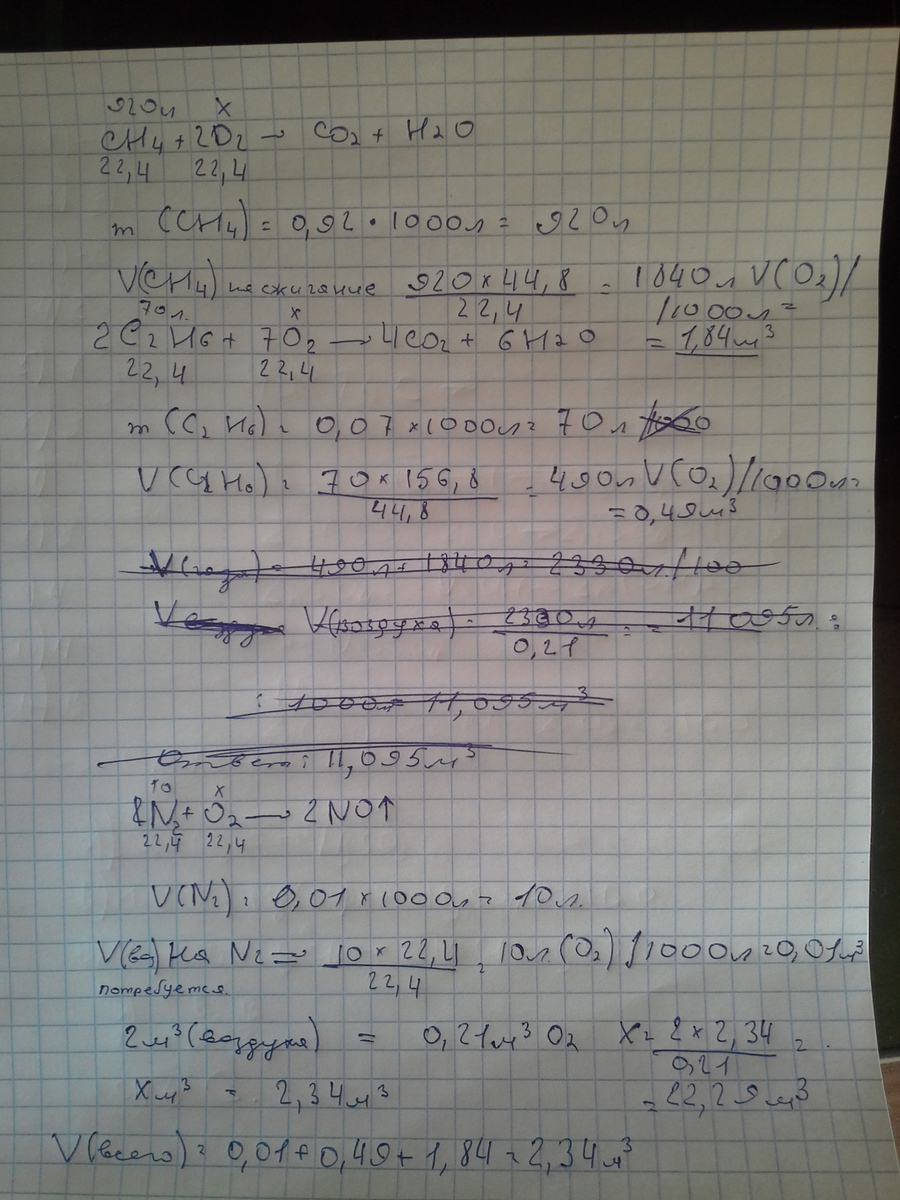 920л X
CH4 + 2O2 → CO2 + H2O
22,4 22,4
m (CH4) = 0,92 · 1000л = 920л
V(CH4) на сжигание 920 × 44,8 / 22,4 = 1840 л V(O2)/
/1000л =
= 1,84м³
70л. x
2C2H6 + 7O2 → 4CO2 + 6H2O
22,4 22,4
m (C2H6) = 0,07 × 1000л = 70л
V(C2H6) = 70 × 156,8 / 44,8 = 490л V(O2)/1000л =
= 0,49м³
V(газа) = 490л + 1840л = 2330л/100
V(воздуха) = 2330л / 0,21 = = 11095л :
: 1000л = 11,095м³
Ответ: 11,095м³
10 x
N2 + O2 → 2NO↑
22,4 22,4
V(N2) = 0,01 × 1000л = 10л.
V(O2) на N2 = 10 × 22,4 / 22,4 = 10л (O2) /1000л = 0,01м³
потребуется.
2м³ (воздуха) = 0,21м³ O2 X = 2 × 2,34 / 0,21 =
Xм³ = 2,34м³ = 22,29м³
V(всего) = 0,01 + 0,49 + 1,84 = 2,34м³